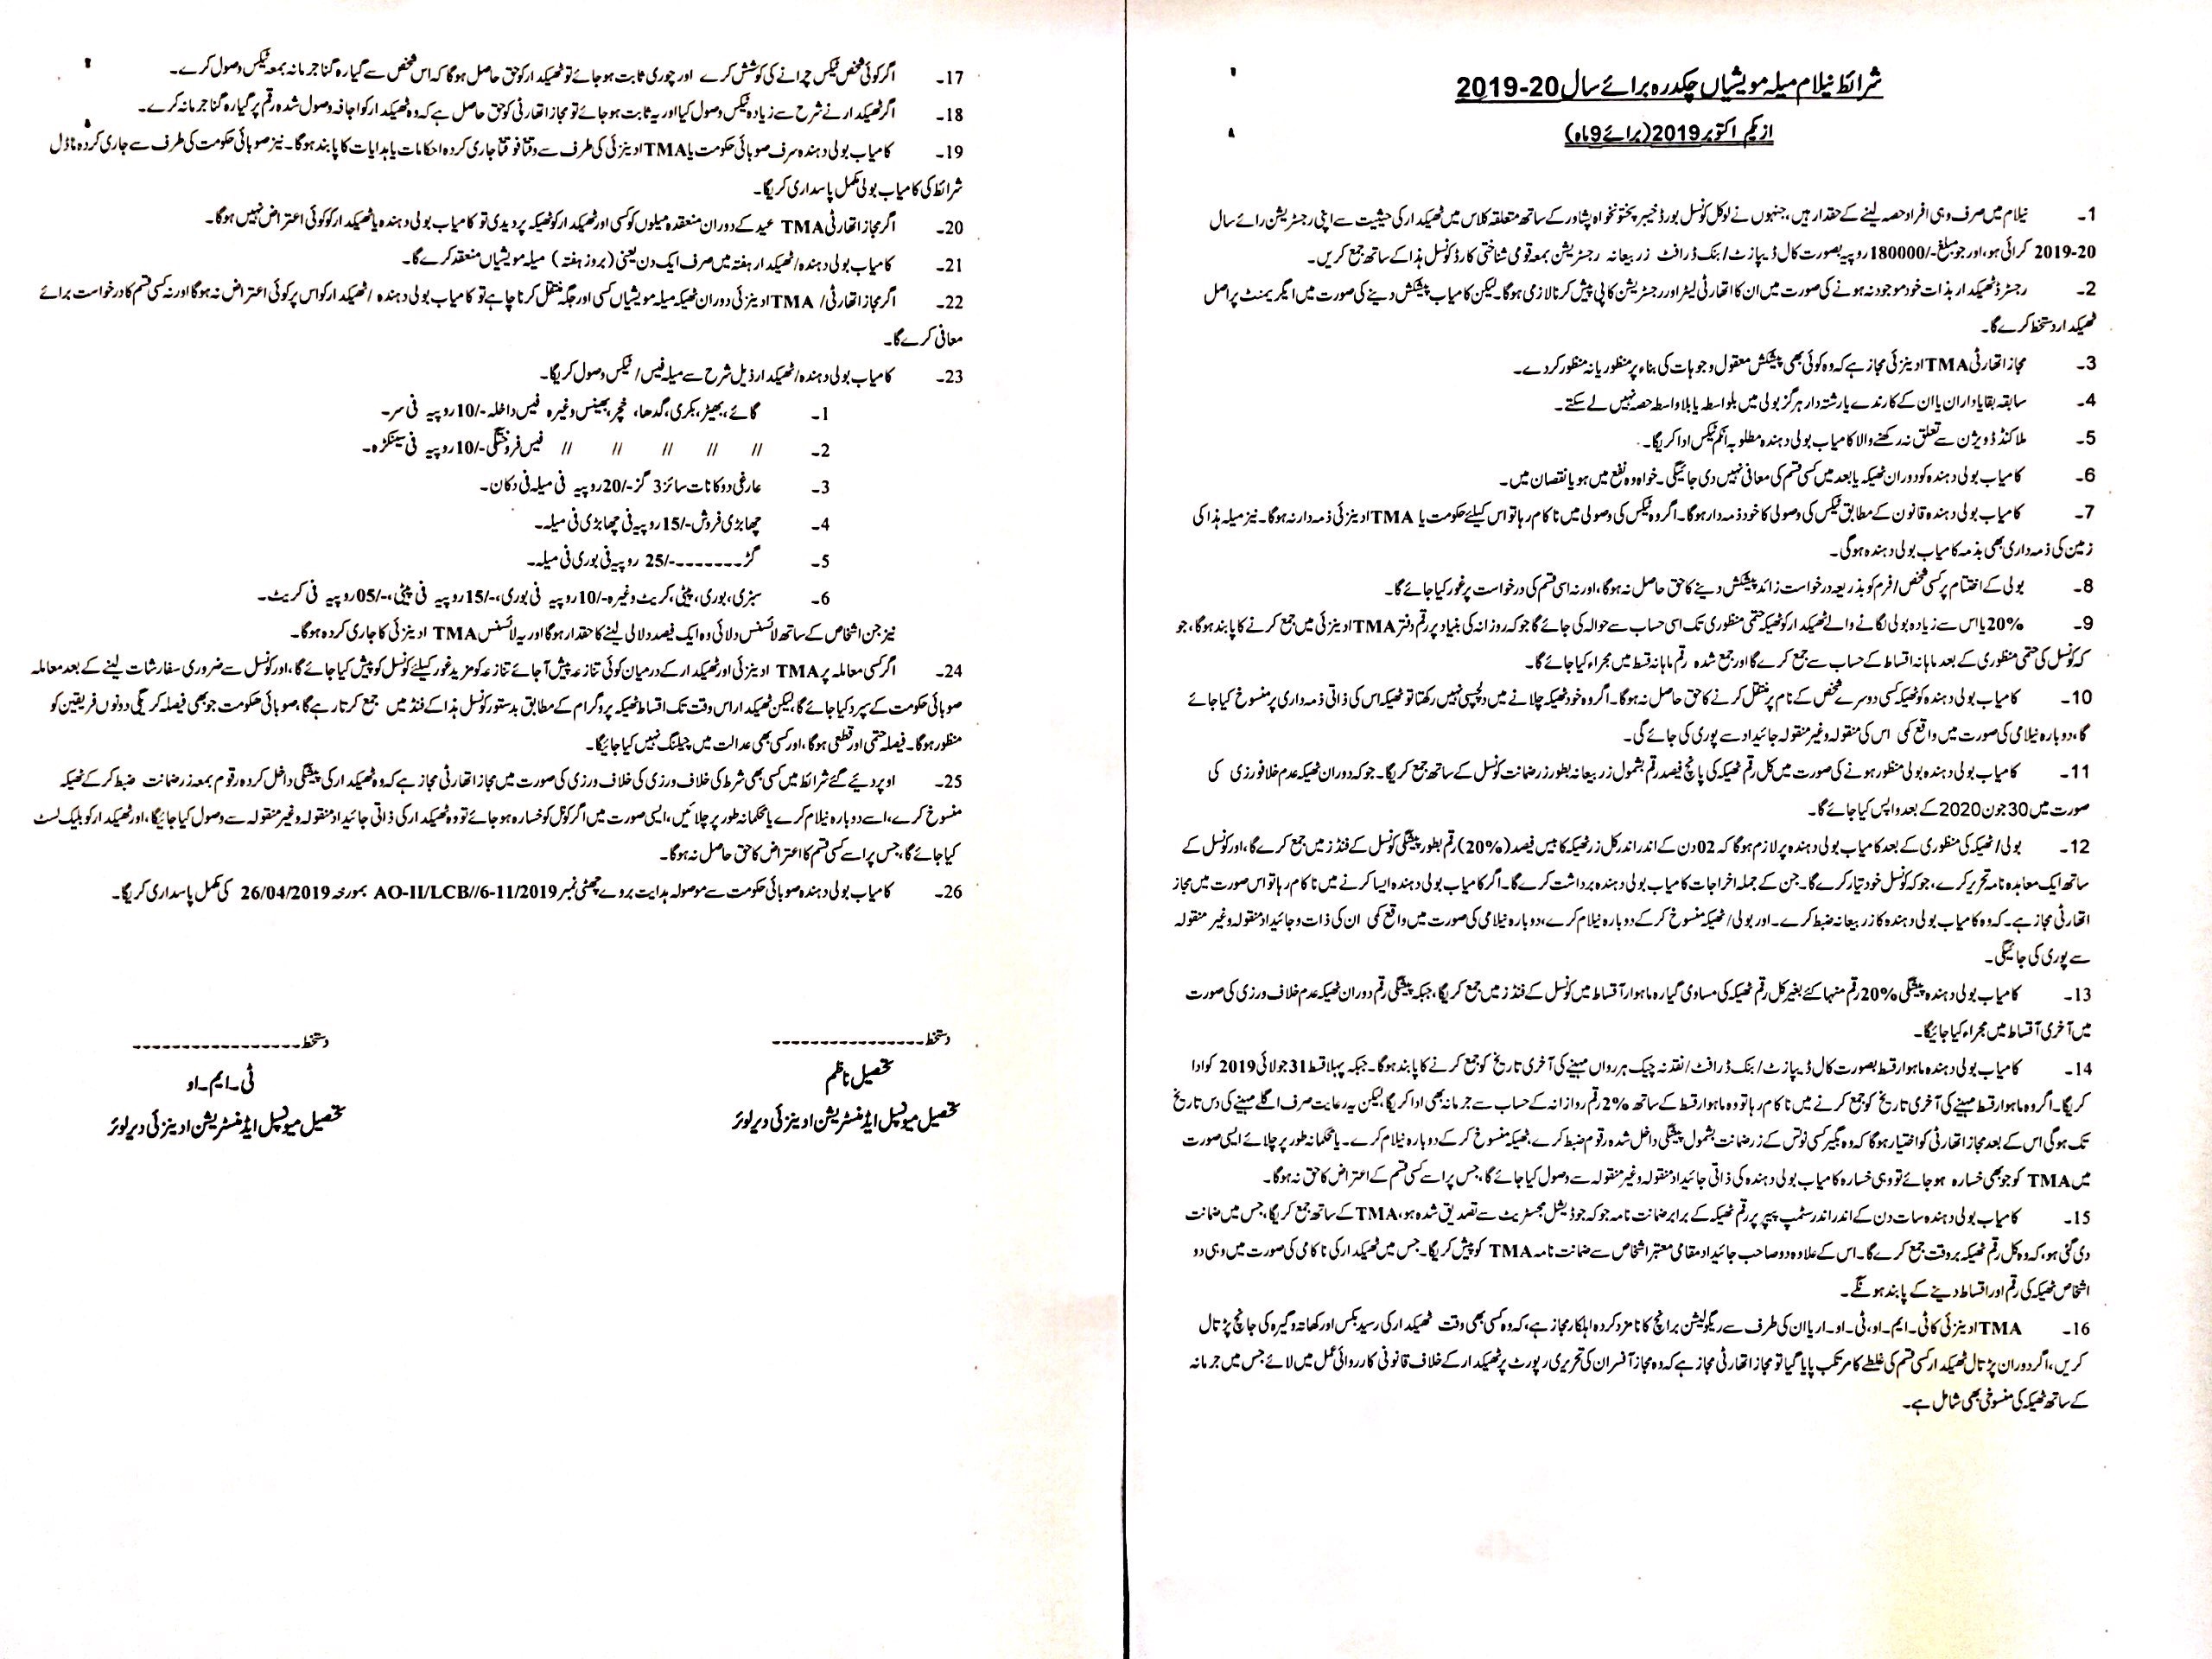 شرائط نیلام میلہ مویشیاں چکدرہ برائے سال 20-2019
از یکم اکتوبر 2019(برائے 9 ماہ)
1۔ نیلام میں صرف وہی افراد حصہ لینے کے حقدار ہیں، جنہوں نے لوکل کونسل بورڈ خیبر پختونخواہ پشاور کے ساتھ متعلقہ کلاس میں ٹھیکدار کی حیثیت سے اپنی رجسٹریشن رائے سال
2019-20 کرائی ہو، اور جو مبلغ -/180000 روپیہ بصورت کال ڈیپازٹ/ بنک ڈرافٹ زر بیعانہ رجسٹریشن بمعہ قومی شناختی کارڈ کونسل ہذا کے ساتھ جمع کریں۔
2۔ رجسٹرڈ ٹھیکدار بذات خود موجود نہ ہونے کی صورت میں ان کا اتھارٹی لیٹر اور رجسٹریشن کاپی پیش کرنا لازمی ہوگا۔ لیکن کامیاب پیشکش دینے کی صورت میں ایگریمنٹ پر اصل
ٹھیکدار دستخط کرے گا۔
3۔ مجاز اتھارٹی TMA ادینزئی مجاز ہے کہ وہ کوئی بھی پیشکش معقول وجوہات کی بناء پر منظور یا نہ منظور کردے۔
4۔ سابقہ بقایاداران یا ان کے کارندے یا رشتہ دار ہرگز بولی میں بلواسطہ یا بلا واسطہ حصہ نہیں لے سکتے۔
5۔ ملاکنڈ ڈویژن سے تعلق نہ رکھنے والا کامیاب بولی دہندہ مطلوبہ انکم ٹیکس ادا کریگا۔
6۔ کامیاب بولی دہندہ کو دوران ٹھیکہ یا بعد میں کسی قسم کی معافی نہیں دی جائیگی۔ خواہ وہ نفع میں ہو یا نقصان میں۔
7۔ کامیاب بولی دہندہ قانون کے مطابق ٹیکس کی وصولی کا خود ذمہ دار ہوگا۔ اگر وہ ٹیکس کی وصولی میں ناکام رہا تو اس کیلئے حکومت یا TMA ادینزئی ذمہ دار نہ ہوگا۔ نیز میلہ ہذا کی
زمین کی ذمہ داری بھی بذمہ کامیاب بولی دہندہ ہوگی۔
8۔ بولی کے اختتام پر کسی شخص/ فرم کو بذریعہ درخواست زائد پیشکش دینے کا حق حاصل نہ ہوگا، اور نہ اسی قسم کی درخواست پر غور کیا جائے گا۔
9۔ 20% یا اس سے زیادہ بولی لگانے والے ٹھیکدار کو ٹھیکہ حتمی منظوری تک اسی حساب سے حوالہ کی جائے گا جو کہ روزانہ کی بنیاد پر رقم دفتر TMA ادینزئی میں جمع کرنے کا پابند ہوگا، جو
کہ کونسل کی حتمی منظوری کے بعد ماہانہ اقساط کے حساب سے جمع کرے گا اور جمع شدہ رقم ماہانہ قسط میں مجراء کیا جائے گا۔
10۔ کامیاب بولی دہندہ کو ٹھیکہ کسی دوسرے شخص کے نام پر منتقل کرنے کا حق حاصل نہ ہوگا۔ اگر وہ خود ٹھیکہ چلانے میں دلچسپی نہیں رکھتا تو ٹھیکہ اس کی ذاتی ذمہ داری پر منسوخ کیا جائے
گا، دوبارہ نیلامی کی صورت میں واقع کمی اس کی منقولہ و غیر منقولہ جائیداد سے پوری کی جائے گی۔
11۔ کامیاب بولی دہندہ بولی منظور ہونے کی صورت میں کل رقم ٹھیکہ کی پانچ فیصد رقم بشمول زر بیعانہ بطور زر ضمانت کونسل کے ساتھ جمع کریگا۔ جو کہ دوران ٹھیکہ عدم خلافورزی کی
صورت میں 30 جون 2020 کے بعد واپس کیا جائے گا۔
12۔ بولی/ ٹھیکہ کی منظوری کے بعد کامیاب بولی دہندہ پر لازم ہوگا کہ 02 دن کے اندر اندر کل زر ٹھیکہ کا بیس فیصد (20%) رقم بطور پیشگی کونسل کے فنڈز میں جمع کرے گا، اور کونسل کے
ساتھ ایک معاہدہ نامہ تحریر کرے، جو کہ کونسل خود تیار کرے گا۔ جن کے جملہ اخراجات کامیاب بولی دہندہ برداشت کرے گا۔ اگر کامیاب بولی دہندہ ایسا کرنے میں ناکام رہا تو اس صورت میں مجاز
اتھارٹی مجاز ہے۔ کہ وہ کامیاب بولی دہندہ کا زر بیعانہ ضبط کرے۔ اور بولی/ ٹھیکہ منسوخ کر کے دوبارہ نیلام کرے، دوبارہ نیلامی کی صورت میں واقع کمی ان کی ذات و جائیداد منقولہ و غیر منقولہ
سے پوری کی جائیگی۔
13۔ کامیاب بولی دہندہ پیشگی 20% رقم منہا کئے بغیر کل رقم ٹھیکہ کی مساوی گیارہ ماہوار آقساط میں کونسل کے فنڈز میں جمع کریگا، جبکہ پیشگی رقم دوران ٹھیکہ عدم خلاف ورزی کی صورت
میں آخری آقساط میں مجراء کیا جائیگا۔
14۔ کامیاب بولی دہندہ ماہوار قسط بصورت کال ڈیپازٹ/ بنک ڈرافٹ/ نقد نہ چیک ہر رواں مہینے کی آخری تاریخ کو جمع کرنے کا پابند ہوگا۔ جبکہ پہلا قسط 31 جولائی 2019 کو ادا
کریگا۔ اگر وہ ماہوار قسط مہینے کی آخری تاریخ کو جمع کرنے میں ناکام رہا تو وہ ماہوار قسط کے ساتھ 2% رقم روزانہ کے حساب سے جرمانہ بھی ادا کریگا، لیکن یہ رعایت صرف اگلے مہینے کی دس تاریخ
تک ہوگی اس کے بعد مجاز اتھارٹی کو اختیار ہوگا کہ وہ بگیر کسی نوٹس کے زر ضمانت بشمول پیشگی داخل شدہ رقوم ضبط کرے، ٹھیکہ منسوخ کر کے دوبارہ نیلام کرے۔ یا محکمانہ طور پر چلائے ایسی صورت
میں TMA کو جو بھی خسارہ ہو جائے تو وہی خسارہ کامیاب بولی دہندہ کی ذاتی جائیداد منقولہ و غیر منقولہ سے وصول کیا جائے گا، جس پر اسے کسی قسم کے اعتراض کا حق نہ ہوگا۔
15۔ کامیاب بولی دہندہ سات دن کے اندر اندر سٹمپ پیپر پر رقم ٹھیکہ کے برابر ضمانت نامہ جو کہ جوڈیشل مجسٹریٹ سے تصدیق شدہ ہو، TMA کے ساتھ جمع کریگا، جس میں ضمانت
دی گئی ہو، کہ وہ کل رقم ٹھیکہ بروقت جمع کرے گا۔ اس کے علاوہ دو صاحب جائیداد مقامی معتبر اشخاص سے ضمانت نامہ TMA کو پیش کریگا۔ جس میں ٹھیکدار کی ناکامی کی صورت میں وہی دو
اشخاص ٹھیکہ کی رقم اور اقساط دینے کے پابند ہونگے۔
16۔ TMA ادینزئی کا ٹی۔ایم۔او، ٹی۔او۔ار یا ان کی طرف سے ریگولیشن برانچ کا نامزد کردہ اہلکار مجاز ہے، کہ وہ کسی بھی وقت ٹھیکدار کی رسید بکس اور کھاتہ وگیرہ کی جانچ پڑتال
کریں، اگر دوران پڑتال ٹھیکدار کسی قسم کی غلطے کا مرتکب پایا گیا تو مجاز اتھارٹی مجاز ہے کہ وہ مجاز آفسران کی تحریری رپورٹ پر ٹھیکدار کے خلاف قانونی کارروائی عمل میں لائے جس میں جرمانہ
کے ساتھ ٹھیکہ کی منسوخی بھی شامل ہے۔
17۔ اگر کوئی شخص ٹیکس چرانے کی کوشش کرے اور چوری ثابت ہو جائے تو ٹھیکدار کو حق حاصل ہوگا کہ اس شخص سے گیارہ گنا جرمانہ بمعہ ٹیکس وصول کرے۔
18۔ اگر ٹھیکدار نے شرح سے زیادہ ٹیکس وصول کیا اور یہ ثابت ہو جائے تو مجاز اتھارٹی کو حق حاصل ہے کہ وہ ٹھیکدار کو اجافہ وصول شدہ رقم پر گیارہ گنا جرمانہ کرے۔
19۔ کامیاب بولی دہندہ سرف صوبائی حکومت یا TMA ادینزئی کی طرف سے وقتاً فوقتاً جاری کردہ احکامات یا ہدایات کا پابند ہوگا۔ نیز صوبائی حکومت کی طرف سے جاری کردہ ماڈل
شرائط کی کامیاب بولی مکمل پاسداری کریگا۔
20۔ اگر مجاز اتھارٹی TMA عید کے دوران منعقدہ میلوں کو کسی اور ٹھیکدار کو ٹھیکہ پر دیدی تو کامیاب بولی دہندہ یا ٹھیکدار کو کوئی اعتراض نہیں ہوگا۔
21۔ کامیاب بولی دہندہ/ ٹھیکدار ہفتہ میں صرف ایک دن یعنی (بروز ہفتہ) میلہ مویشیاں منعقد کرے گا۔
22۔ اگر مجاز اتھارٹی/ TMA ادینزئی دوران ٹھیکہ میلہ مویشیاں کسی اور جگہ منتقل کرنا چاہے تو کامیاب بولی دہندہ / ٹھیکدار کو اس پر کوئی اعتراض نہ ہوگا اور نہ کسی قسم کا درخواست برائے
معافی کرے گا۔
23۔ کامیاب بولی دہندہ/ ٹھیکدار ذیل شرح سے میلہ فیس/ ٹیکس وصول کریگا۔
1۔ گائے، بھیڑ، بکری، گدھا، خچر، بھینس وغیرہ فیس داخلہ -/10 روپیہ فی سر۔
2۔ // // // // // فیس فروختگی -/10 روپیہ فی سینکڑہ۔
3۔ عارغی دوکانات سائز 3 گز -/20 روپیہ فی میلہ فی دکان۔
4۔ چھابڑی فروش -/15 روپیہ فی چھابڑی فی میلہ۔
5۔ گڑ۔۔۔۔۔۔۔-/25 روپیہ فی بوری فی میلہ۔
6۔ سبزی، بوری، پیٹی، کریٹ وغیرہ -/10 روپیہ فی بوری، -/15 روپیہ فی پیٹی، -/05 روپیہ فی کریٹ۔
نیز جن اشخاص کے ساتھ لائسنس دلائی وہ ایک فیصد دلالی لینے کا حقدار ہوگا اور یہ لائسنس TMA ادینزئی کا جاری کردہ ہوگا۔
24۔ اگر کسی معاملہ پر TMA ادینزئی اور ٹھیکدار کے درمیان کوئی تنازعہ پیش آجائے تنازعہ کو مزید غور کیلئے کونسل کو پیش کیا جائے گا، اور کونسل سے ضروری سفارشات لینے کے بعد معاملہ
صوبائی حکومت کے سپرد کیا جائے گا، لیکن ٹھیکدار اس وقت تک اقساط ٹھیکہ پروگرام کے مطابق بدستور کونسل ہذا کے فنڈ میں جمع کرتا رہے گا، صوبائی حکومت جو بھی فیصلہ کریگی دونوں فریقین کو
منظور ہوگا۔ فیصلہ حتمی اور قطعی ہوگا، اور کسی بھی عدالت میں چیلنگ نہیں کیا جائیگا۔
25۔ اوپر دیئے گئے شرائط میں کسی بھی شرط کی خلاف ورزی کی خلاف ورزی کی صورت میں مجاز اتھارٹی مجاز ہے کہ وہ ٹھیکدار کی پیشگی داخل کردہ رقوم بمعہ زر ضمانت ضبط کر کے ٹھیکہ
منسوخ کرے، اسے دوبارہ نیلام کرے یا محکمانہ طور پر چلائیں، ایسی صورت میں اگر کونل کو خسارہ ہو جائے تو وہ ٹھیکدار کی ذاتی جائیداد منقولہ و غیر منقولہ سے وصول کیا جائیگا، اور ٹھیکدار کو بلیک لسٹ
کیا جائے گا، جس پر اسے کسی قسم کا اعتراض کا حق حاصل نہ ہوگا۔
26۔ کامیاب بولی دہندہ صوبائی حکومت سے موصولہ ہدایت بروے چھٹی نمبر AO-II/LCB//6-11/2019 بمورخہ 26/04/2019 کی مکمل پاسداری کریگا۔
دستخط۔۔۔۔۔۔۔۔۔۔۔۔۔۔۔۔ دستخط۔۔۔۔۔۔۔۔۔۔۔۔۔۔۔۔۔
تحصیل ناظم ٹی۔ایم۔او
تحصیل میونسپل ایڈمنسٹریشن ادینزئی دیرلوئر تحصیل میونسپل ایڈمنسٹریشن ادینزئی دیرلوئر